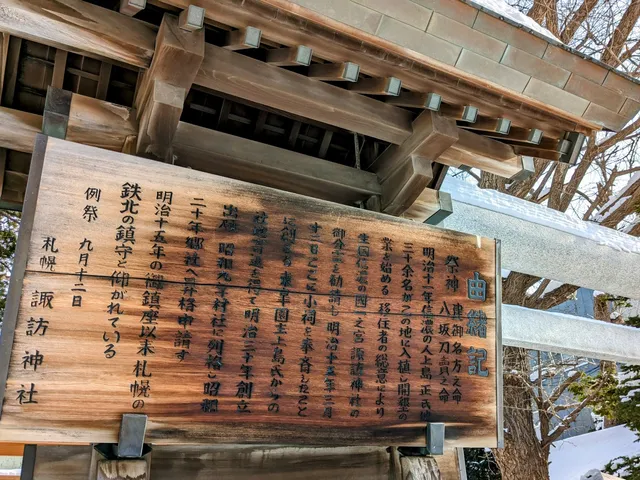 由緒記
祭神 建御名方之命
八坂刀賣之命
明治十一年信濃の人上島 正氏他
三十余名がこの地に入植し開墾の
業を始める 移住者の総意により
生国信濃の國一之宮 諏訪大社の
御分霊を勧請し 明治十五年三月
十一日ここに小祠を奉斎したこと
に創まる 東皐園主上島氏からの
社地寄進を得て 明治三十年創立
出願 昭和九年村社に列格し 昭和
二十年郷社へ昇格申請す
明治十五年の御鎮座以来 札幌の
鉄北の鎮守と仰がれている
例祭 九月十二日
札幌 諏訪神社